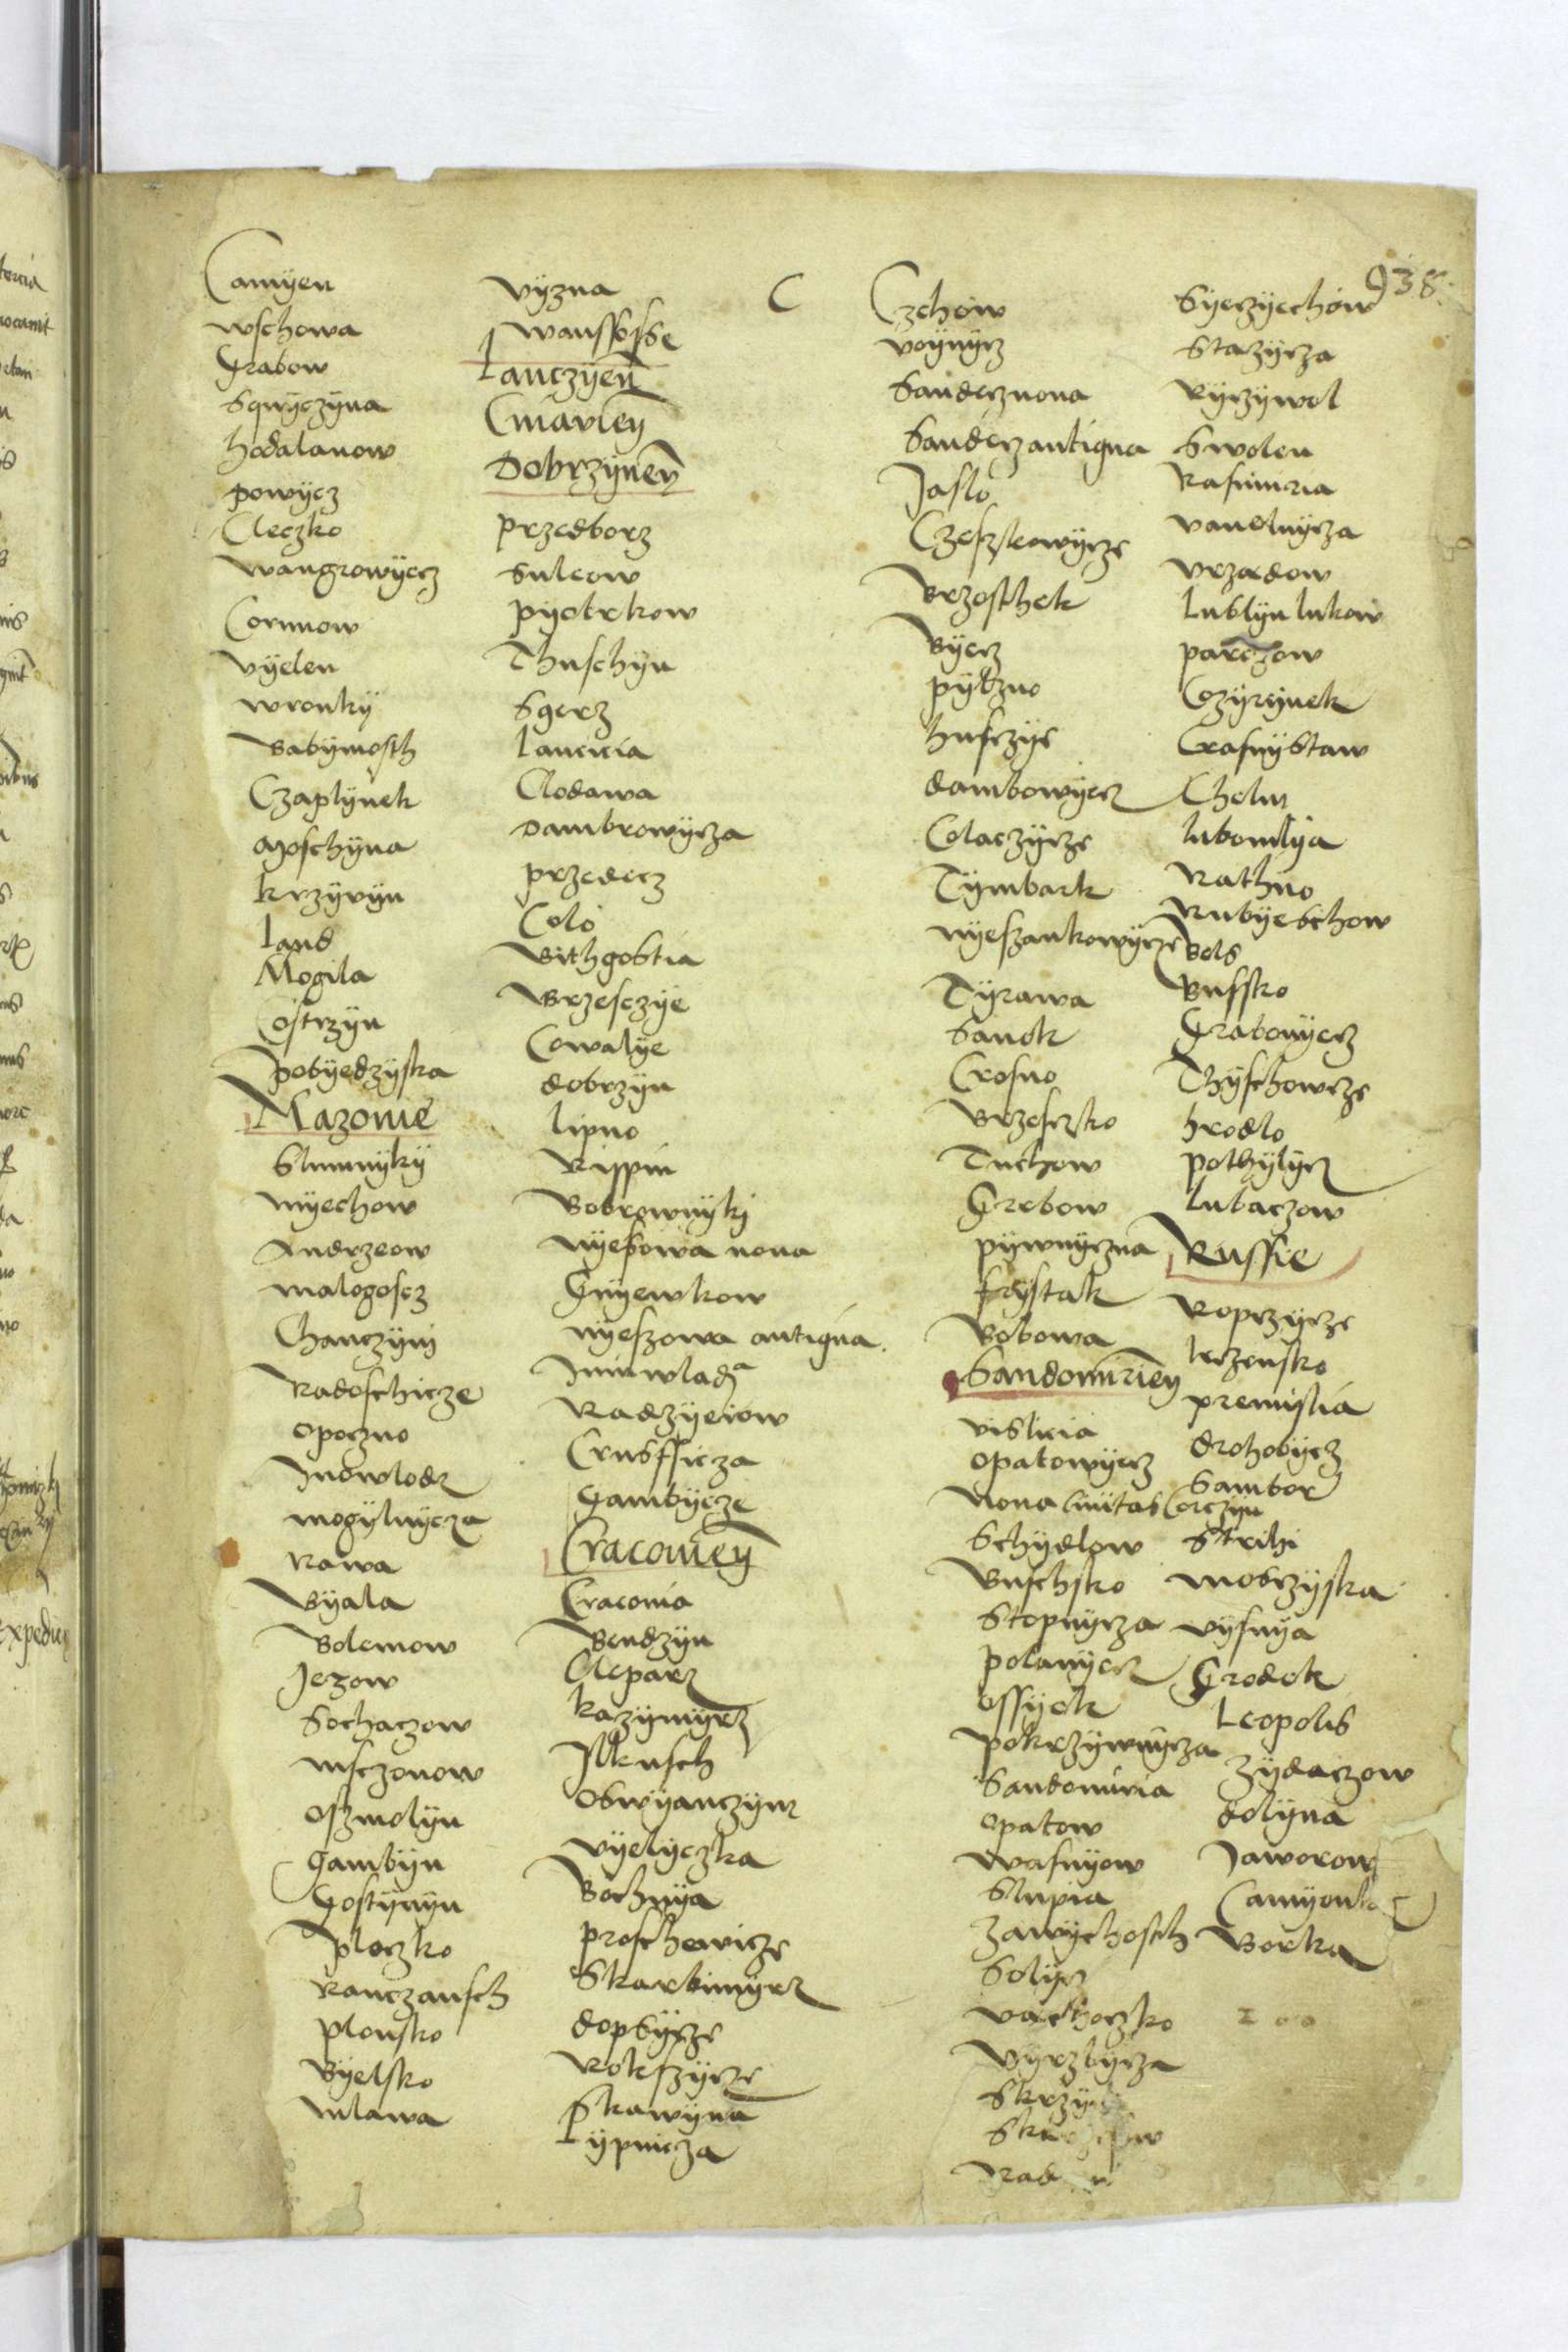 938.
Camyen
wschowa
Grabow
Sqwyczyna
hodalanow
powycz
Cleczko
wangrowyecz
Cornnow
vyelen
wronky
Babymosth
Czaplynek
Moschyna
krzyvyn
land
Mogila
Costrzyn
pobyedzyska
Mazouie
Slumnyky
myechow
Andrzeow
malogoscz
Chanczyny
Radoschicze
opoczno
Inowlodz
mogylnycza
Rawa
Byala
Bolemow
Jezow
Sochaczow
msczonow
oszmolyn
gambyn
Gostynyn
ploczko
Ranczansch
plonsko
Byelsko
mlawa
vyzna
wanssosse
Lanczycien
Cuiavien
Dobrzynen
przedborz
Suleow
pyotrkow
Thuschyn
Sgerz
lancicia
Clodawa
dambrowycza
przedecz
Colo
Bithgostia
Brzesczye
Cowalye
dobrzyn
lipno
Rippin
Bobrownyky
nyesowa noua
Gnyewkow
nyeszowa antiqua
Iuniwladᵃ
Radzyeiow
Crusfficza
Gambycze
Cracouien
Cracouia
Bendzyn
Cleparz
kazymyrz
Ilkusch
oswyanczym
vyelyczka
Bochnya
proschowicze
Skarbimyrz
dopsycze
Wokszycze
Skawyna
Lypnicza
C
Czchow
voynycz
Sandecz noua
Sandecz antiqua
Jaslo
Czeszkowycze
Brzosthek
Byecz
pylzno
husczye
dambowyecz
Colaczycze
Tymbark
nyeszankowycze
Tyrawa
Sanok
Crosno
Brzesczko
Tuchow
Grebow
pywnyczna
frystak
Bobowa
Sandomirien
vislicia
opatowyecz
noua ciuitas Corczyn
Schydlow
Buschsko
Stopnycza
polanyecz
ossyek
pokrzywnycza
Sandomiria
opatow
wasnyow
Slupia
zawychosth
Solyecz
vachoczko
vyrzbycza
Syeczyechow
Stazycza
Ryczywol
Swolen
Kasimiria
vanolnycza
vrzadow
Lublyn lukow
parczow
Cozyrynek
Crasnystaw
Chelm
lubomlya
Rathno
Rubyeschow
Bels
Bussko
Grabowyecz
Thyschowcze
hrodlo
pothylycz
lubaczow
Russie
Ropczycze
lezensko
premislia
drohobycz
Sambor
Strihi
mosczyska
vysnya
Grodek
Leopolis
zydaczow
dolyna
Jaworow
Borka